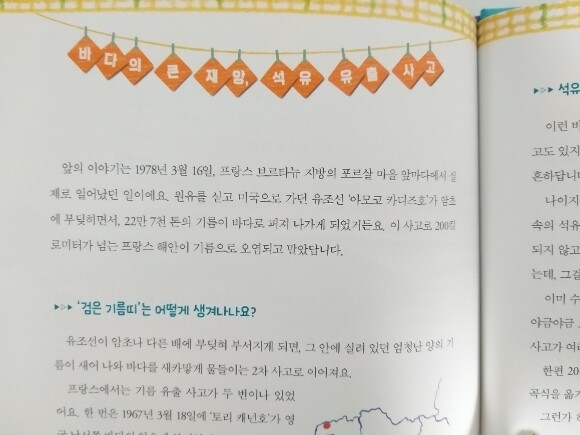 바다의 큰 재앙, 석유 유출 사고
앞의 이야기는 1978년 3월 16일, 프랑스 브르타뉴 지방의 포르살 마을 앞바다에서 실
제로 일어났던 일이에요. 원유를 싣고 미국으로 가던 유조선 '아모코 카디즈호'가 암초
에 부딪히면서, 22만 7천 톤의 기름이 바다로 퍼져 나가게 되었거든요. 이 사고로 200킬
로미터가 넘는 프랑스 해안이 기름으로 오염되고 말았답니다.
▶▷▶ '검은 기름띠'는 어떻게 생겨나나요?
유조선이 암초나 다른 배에 부딪혀 부서지게 되면, 그 안에 실려 있던 엄청난 양의 기
름이 새어 나와 바다를 새카맣게 물들이는 2차 사고로 이어져요.
프랑스에서는 기름 유출 사고가 두 번이나 있었
어요. 한 번은 1967년 3월 18일에 '토리 캐년호'가 영
▶▷▶ 석유
이런 바
고도 있지
흔하답니다
나이지
속의 석유
되지 않고
는데, 그걸
이미 수
야금야금
사고가 여러
한편 20
곡식을 옮기
그런가 하